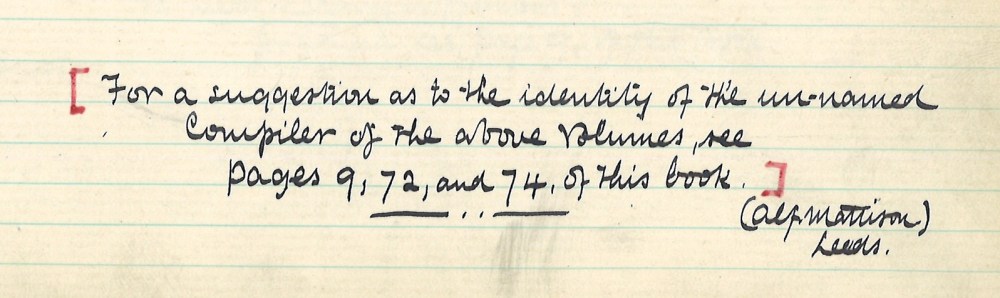 [For a suggestion as to the identity of the un-named
Compiler of the above Volumes, see
pages 9, 72, and 74, of this book.]
(Alf Mattison)
Leeds.